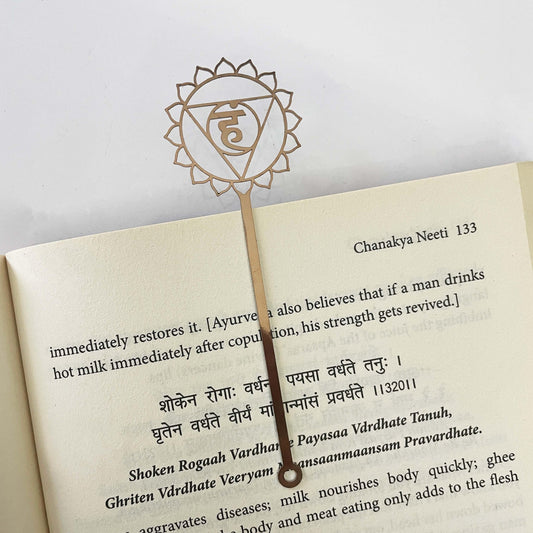 हं
Chanakya Neeti 133
immediately restores it. [Ayurveda also believes that if a man drinks
hot milk immediately after copulation, his strength gets revived.]
शोकेन रोगाः वर्धन्ते पयसा वर्धते तनुः ।
घृतेन वर्धते वीर्यं मांसान्मांसं प्रवर्धते ।।320।।
Shoken Rogaah Vardhante Payasaa Vdrdhate Tanuh,
Ghriten Vdrdhate Veeryam Maansaanmaansam Pravardhate.
aggravates diseases; milk nourishes body quickly; ghee
the body and meat eating only adds to the flesh